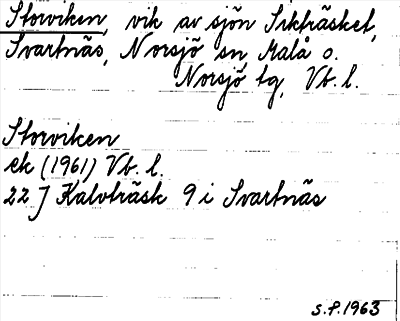 Storviken, vik av sjön Sikträsket,
Svartnäs, Norsjö sn, Malå o.
Norsjö tg, Vb. l.
Storviken
ek (1961) Vb. l.
22 J Kalvträsk 9 i Svartnäs
S.F. 1963